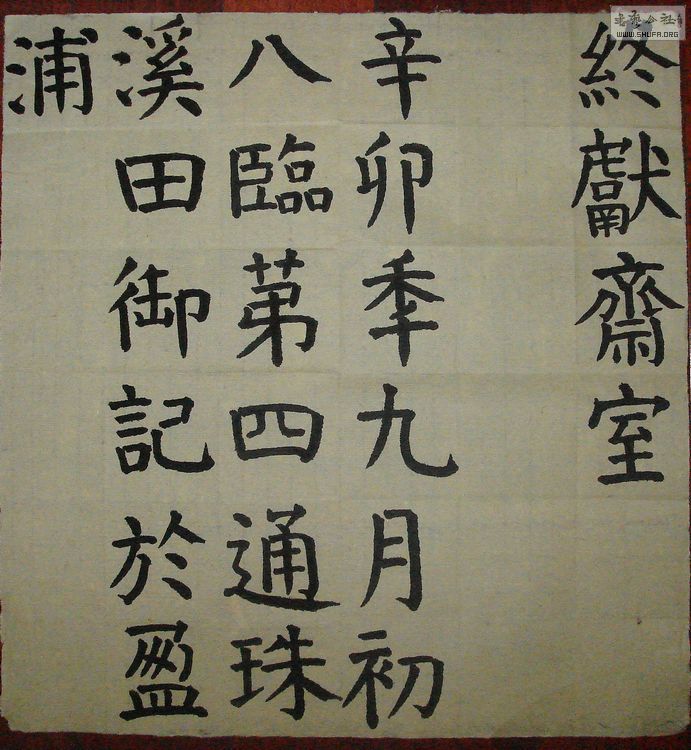 終獻齋室
辛卯季九月初
八臨第四通珠
溪田御記於盈
浦
書藝公社
WWW.SHUFA.ORG